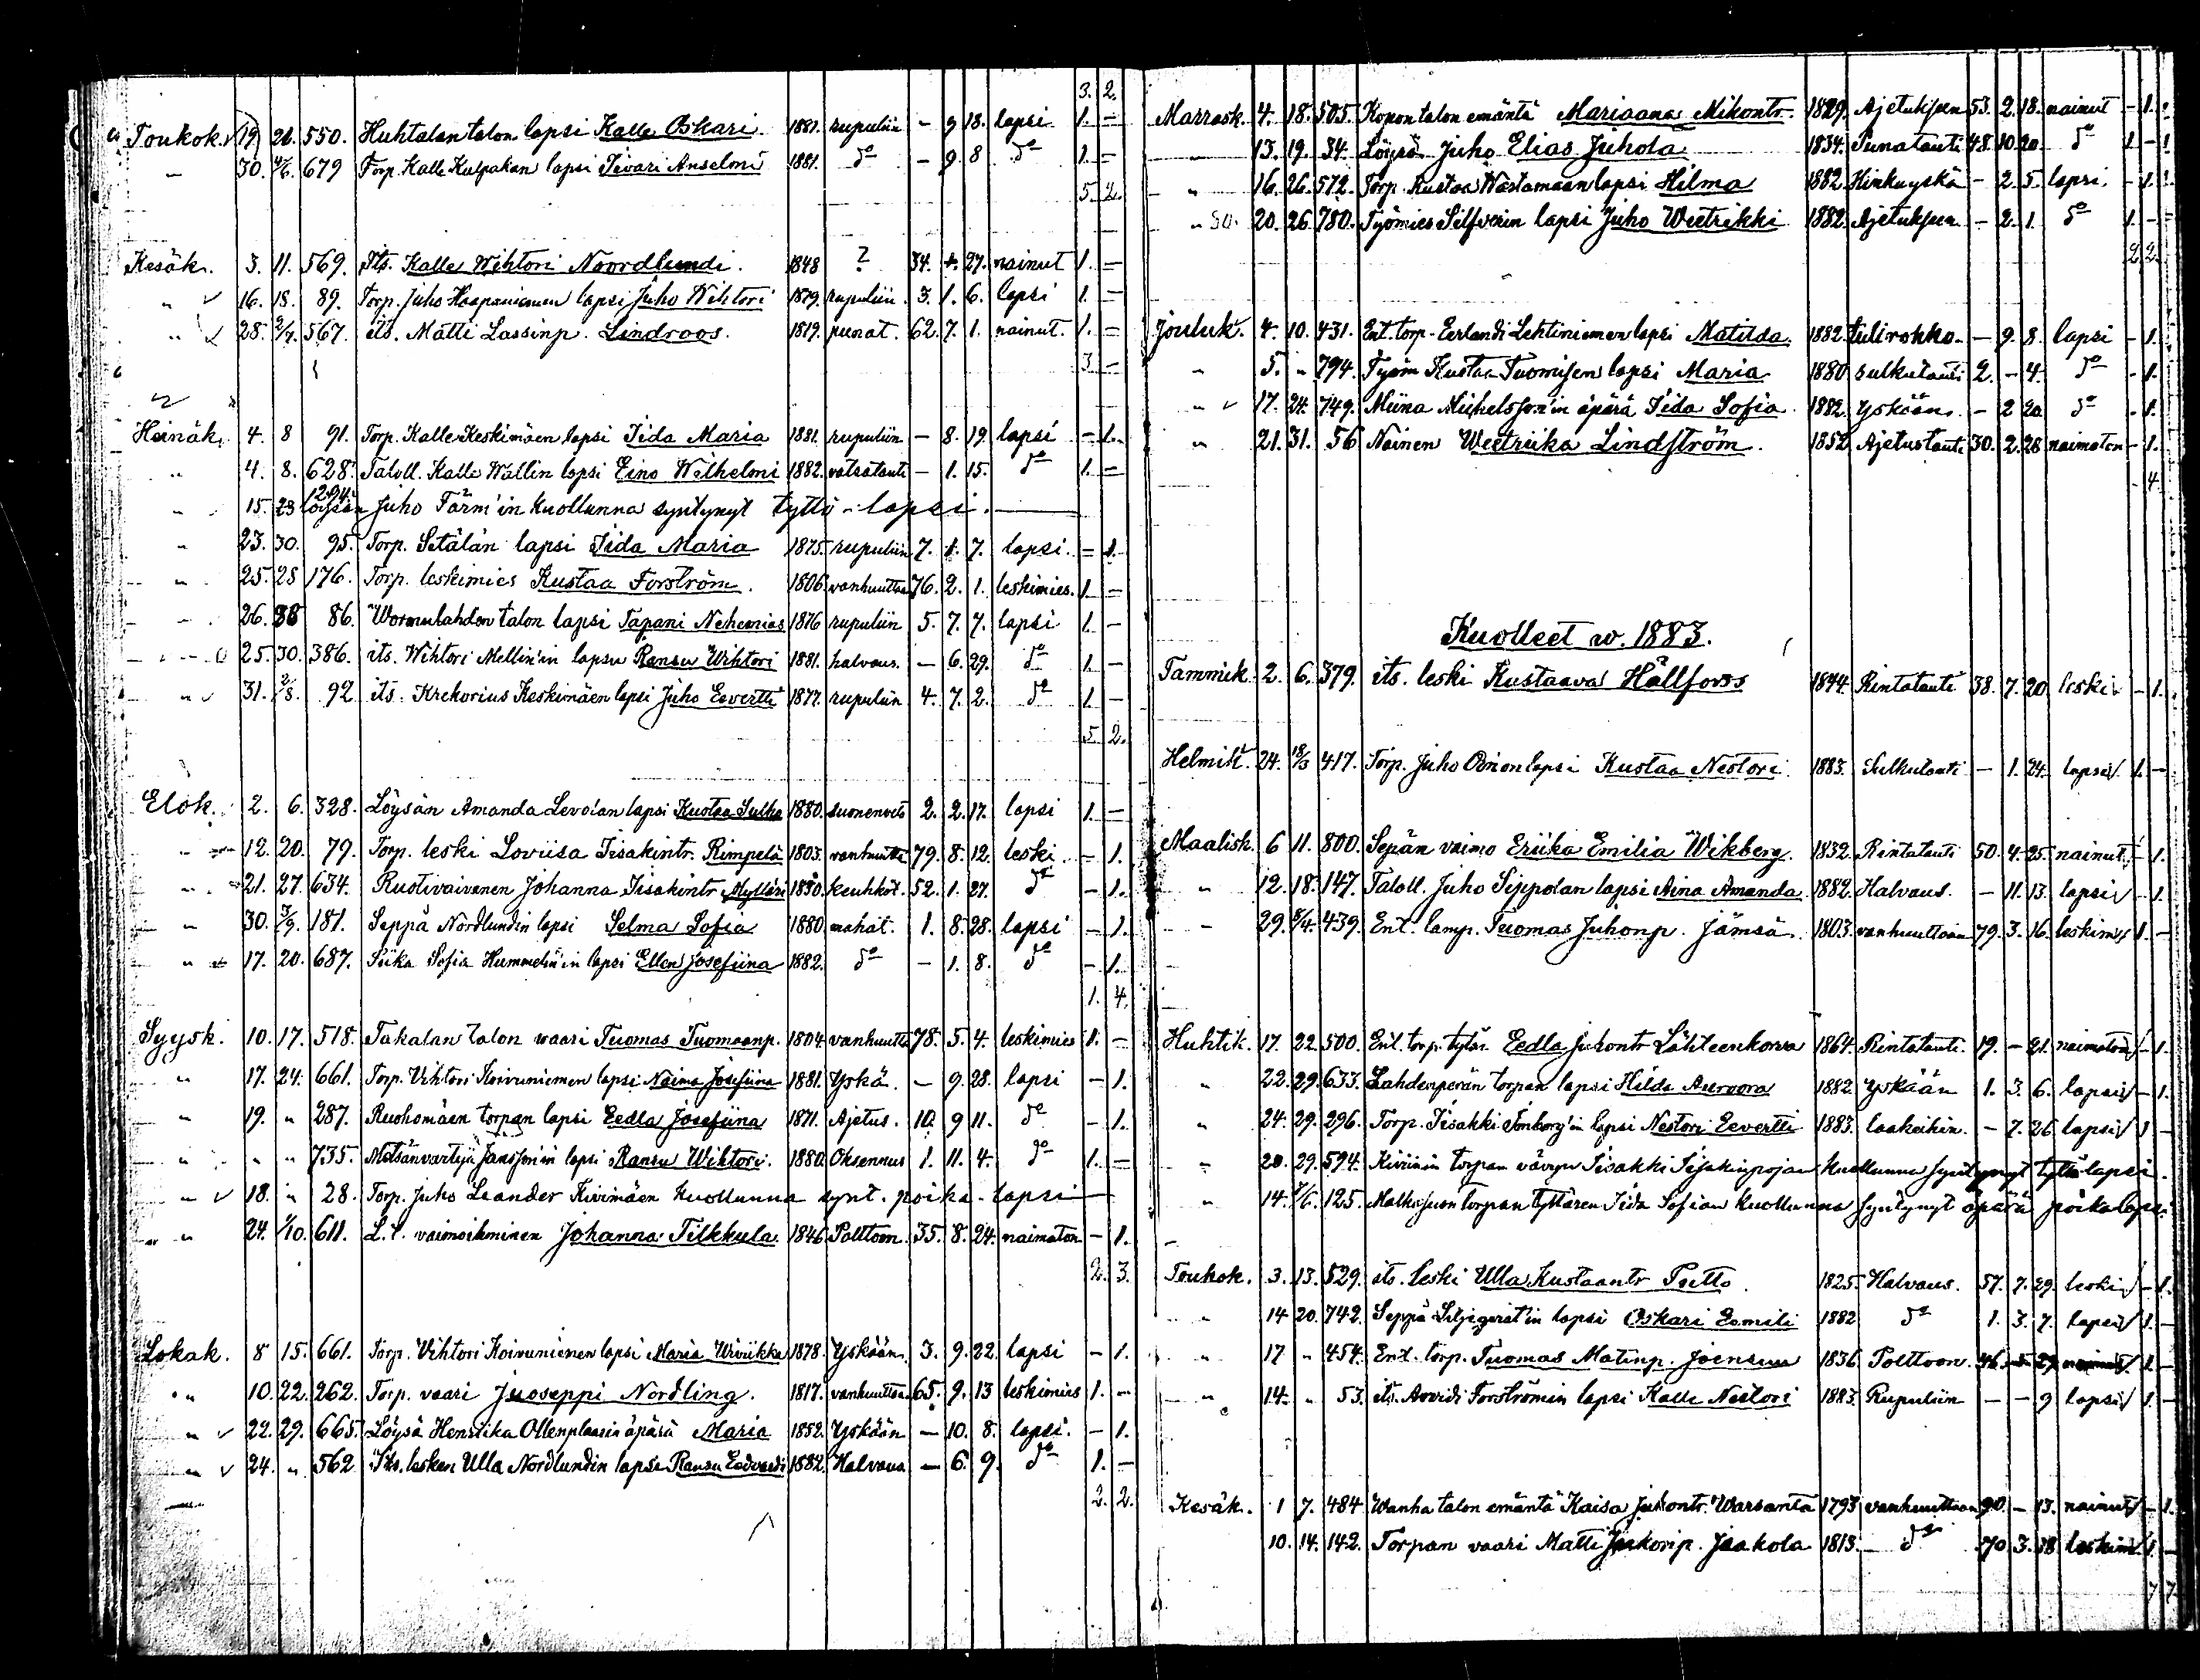 3. 2.
Toukok. 19. 26. 550. Huhtalan talon lapsi Kalle Oskari. 1881. rupuliin - 9 18. lapsi 1. -
" 30. 4/6. 679 Torp. Kalle Kulpakan lapsi Iivari Anselmi 1881. do - 9. 8 do 1. -
5. 2.
Kesäk. 3. 11. 569. Its. Kalle Wihtori Noordlundi. 1848 ? 34. 27. nainut 1. -
" 16. 18. 89. Torp. Juho Haapaniemen lapsi Juho Wihtori 1879. rupuliin. 3. 1. 6. lapsi 1. -
" 28. 2/7. 567. its. Matti Lassinp. Lindroos. 1819. punat. 62. 7. 1. nainut. 1. -
3 -
Heinäk. 4. 8 91. Torp. Kalle Keskimäen lapsi Iida Maria 1881. rupuliin - 8. 19. lapsi - 1.
" 4. 8. 628. Taloll. Kalle Wallin lapsi Eino Wilhelmi 1882. vatsatauti - 1. 15. do 1. -
" 15. 23 294. löysän Juho Färm'in kuollunna syntynyt tyttö-lapsi.
" 23. 30. 95. Torp. Setälän lapsi Iida Maria 1875. rupuliin 7. 1. 7. lapsi. - 1.
" 25. 28 176. Torp. leskimies Kustaa Forström. 1806. vanhuuttaan 76. 2. 1. leskimies. 1. -
" 26. 86. Wormulahden talon lapsi Tapani Nehemias 1876 rupuliin 5. 7. 7. lapsi 1. -
" 25. 30. 386. its. Wihtori Mellin'in lapsu Ransu Wihtori 1881. halvaus. - 6. 29. do 1. -
" 31. 2/8. 92 its. Krekorius Keskimäen lapsi Juho Eevertti 1877. rupuliin 4. 7. 2. do 1. -
5 2.
Elok. 2. 6. 328. Löysän Amanda Levo'an lapsi Kustaa Sulho 1880. suonenveto 2. 2. 17. lapsi 1. -
" 12. 20. 79. Torp. leski Loviisa Iisakintr. Rimpelä 1803. vanhuutta 79. 8. 12. leski - 1.
" 21. 27. 634. Ruotivaivanen Johanna Iisakintr Mylläri 1830. keuhkot. 52. 1. 27. do - 1.
" 30. 3/9. 181. Seppä Nordlundin lapsi Selma Sofia 1880 mahat. 1. 8. 28. lapsi - 1.
" 17. 20. 687. Piika Sofia Hummelin'in lapsi Ellen Josefiina 1882. do - 1. 8. do - 1.
1. 4.
Syysk. 10. 17. 518. Takalan talon vaari Tuomas Tuomaanp. 1804 vanhuutta 78. 5. 4. leskimies 1. -
" 17. 24. 661. Torp. Vihtori Koivuniemen lapsi Naima Josefiina 1881. Yskä. - 9. 28. lapsi - 1.
" 19. " 287. Ruohomäen torpan lapsi Eedla Josefiina 1871. Ajetus. 10. 9 11. do - 1.
" " " 735. Metsänvartija Jansson'in lapsi Ransu Wihtori. 1880. Oksennus 1. 11. 4. do 1. -
" 18. " 28. Torp. Juho Leander Kivimäen kuollunna synt. poika-lapsi
" 24. 1/10. 611. L.l. vaimoihminen Johanna Tilkkula 1846 Polttoon. 35. 8. 24. naimaton - 1.
2. 3.
Lokak. 8 15. 661. Torp. Vihtori Koivuniemen lapsi Maria Wiviikka 1878. Yskään. 3. 9. 22. lapsi - 1.
" 10. 22. 262. Torp. vaari Juoseppi Nordling. 1817. vanhuuttaan 65. 9. 13 leskimies 1. -
" 22. 29. 665. Löysä Henriika Ollenplaasin äpärä Maria 1882. Yskään - 10. 8. lapsi. - 1.
" 24. " 562. Its. lesken Ulla Nordlundin lapsi Ransu Eedvardi 1882. Halvaus - 6. 9. do 1. -
2. 2.
Marrask. 4. 18. 505. Kopon talon emäntä Mariaana Mikontr. 1829. Ajetuksen 53. 2. 18. nainut - 1.
" 13. 19. 34. Löysä Juho Elias Juhola 1834. Punatauti 48. 10 20. do 1 -
" 16. 26. 572. Torp. Kustaa Wastamaan lapsi Hilma 1882. Hinkuyskä - 2. 5. lapsi. - 1.
" 20. 26. 780. Työmies Silfverin lapsi Juho Weetrikki 1882. Ajetuksen - 2. 1. do 1. -
2 2.
Jouluk. 4. 10. 431. Ent. torp. Eerlandi Lehtiniemen lapsi Matilda 1882. tulirokko. - 9. 8. lapsi - 1.
" 5. " 794. Työm Kustaa Tuomisen lapsi Maria 1880 sulkutauti 2. - 4. do - 1.
" 17. 24. 749. Miina Mickelsson'in äpärä Iida Sofia 1882. Yskään. - 2 20. do - 1.
" 21. 31. 56 Nainen Weetriika Lindström. 1852. Ajetustauti 30. 2. 28 naimaton - 1.
- 4.
Kuolleet w. 1883.
Tammik. 2. 6. 379. its. leski Kustaava Hällfors 1844. Rintatauti 38. 7. 20 leski - 1.
Helmik. 24. 18/3 417. Torp. Juho Orion lapsi Kustaa Nestori 1883. Sulkutauti - 1. 24. lapsi 1. -
Maalisk. 6 11. 800. Sepän vaimo Eriika Emilia Wikberg. 1832. Rintatauti 50. 4. 25. nainut - 1.
" 12. 18. 147. Taloll. Juho Sippolan lapsi Aina Amanda 1882. Halvaus. - 11. 13. lapsi - 1.
" 29. 8/4. 439. Ent. lamp. Tuomas Juhonp. Jämsä. 1803. vanhuuttaan 79. 3. 16. leskim 1. -
Huhtik. 17. 22. 500. Ent. torp. tytär. Eedla Juhontr Lähteenkorva 1864. Rintatauti. 19. - 21. naimaton - 1.
" 22. 29. 633. Lahdenperän torpan lapsi Hilda Auroora 1882. Yskään 1. 3. 6. lapsi - 1.
" 24. 29. 296. Torp. Iisakki Tönborg'in lapsi Nestori Eevertti 1883. - 7. 26 lapsi 1 -
" 20. 29. 594. Kiviinin torpan vävyn Iisakki Iisakinpojan kuollunna syntynyt tyttölapsi.
" 14. 7/6. 125. torpan tyttären Iida Sofian kuollunna syntynyt äpärä poikalapsi
Toukok. 3. 13. 529. its. leski Ulla Kustaantr Putto. 1825. Halvaus. 57. 7. 29. leski - 1.
" 14 20. 742. Seppä Siljeqvist'in lapsi Oskari Eemili 1882 do 1. 3. 7. lapsi 1. -
" 17 " 454. Ent. torp. Tuomas Matinp. Joensuu 1836. Polttoon. 46. 1. -
" 14. " 53. its. Arvidi Forströmin lapsi Kalle Nestori 1883. Rupuliin - - 9 lapsi 1. -
Kesäk. 1 7. 484 Wanha talon emäntä Kaisa Juhontr. Warsanta 1793 vanhuuttaan 90. - 13. nainut - 1.
10. 14. 142. Torpan vaari Matti Jaakonp. Jaakola 1813. do 70. 3. 18 leskim 1. -
7 7